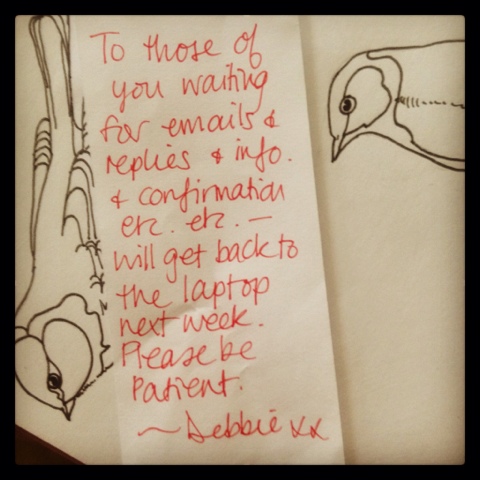 To those of
you waiting
for emails &
replies & info.
& confirmation
etc. etc. —
will get back to
the laptop
next week.
Please be
Patient.
~ Debbie xx